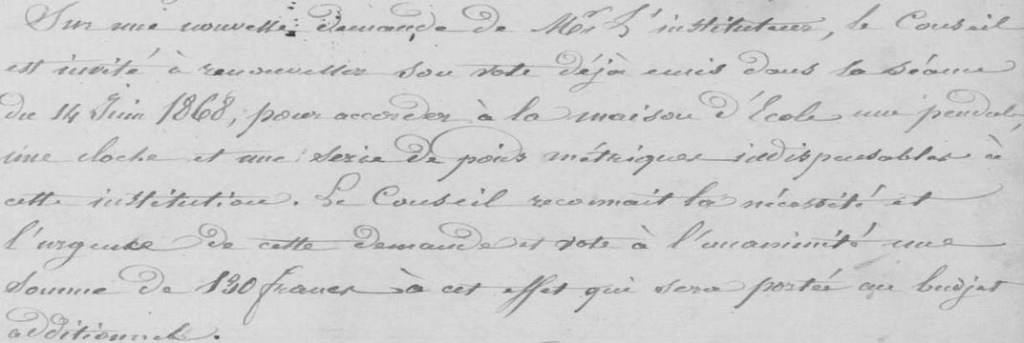 Sur une nouvelle demande de Mr L'instituteur, le Conseil
est invité à renouveller son vote déjà émis dans la séance
du 14 Juin 1868, pour accorder à la maison d'École une pendule,
une cloche et une serie de poids métriques indispensables à
cette institution. Le Conseil reconnait la nécéssité et
l'urgence de cette demande et vote à l'unanimité une
somme de 130 francs à cet effet qui sera portée au budjet
additionnel.